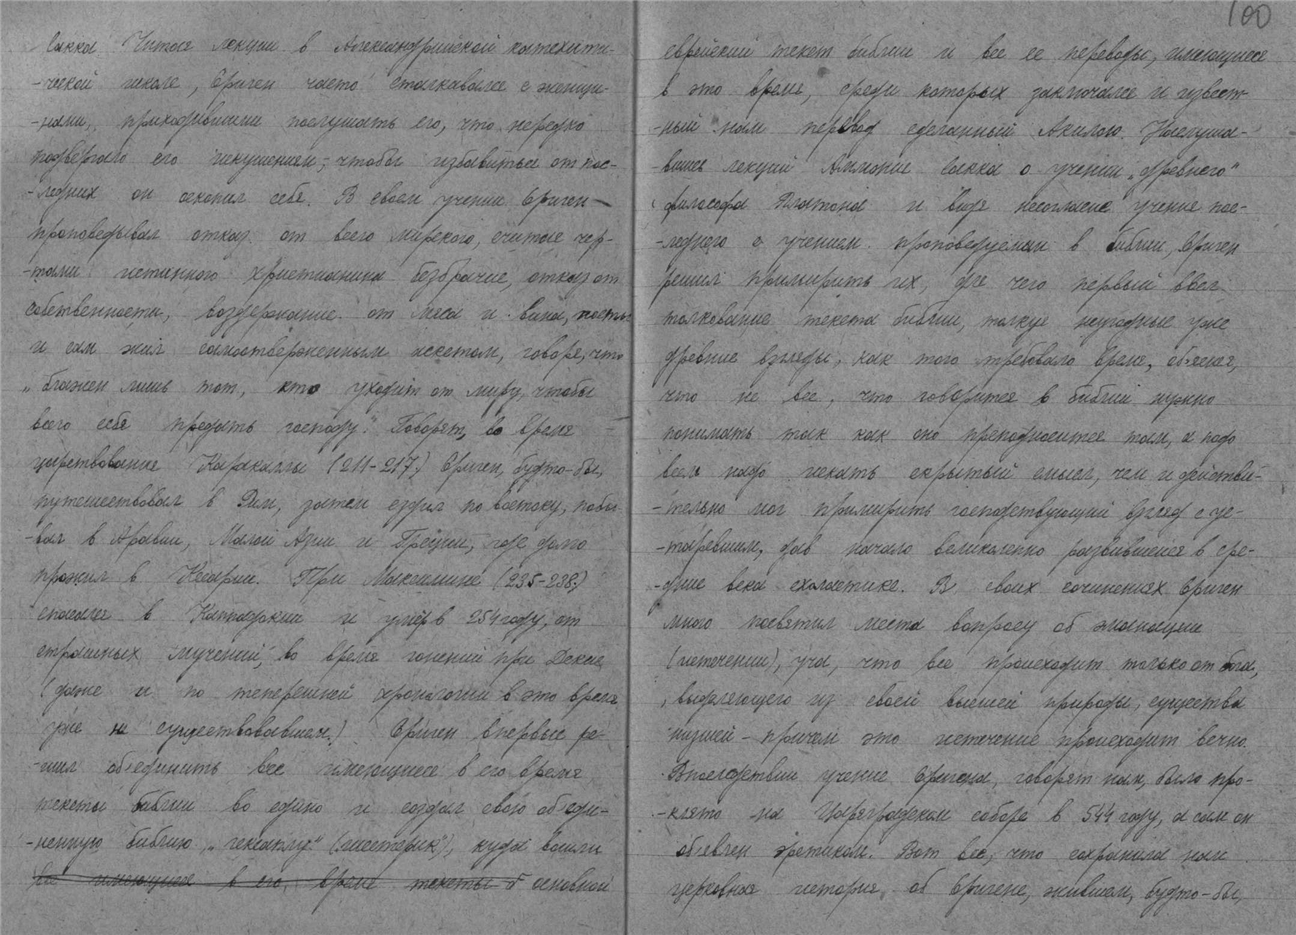 Сакка Читая лекции в Александрийской катехити-
-ческой школе, Ориген часто сталкивался с женщи-
-нами, приходившими послушать его, что нередко
подвергало его искушениям; чтобы избавиться от пос-
-ледних он оскопил себя. В своем учении Ориген
проповедывал отказ от всего мирского, считая чер-
-тами истинного христианина безбрачие, отказ от
собственности, воздержание от мяса и вина, посты
и сам жил самоотверженным аскетом, говоря, что
„блажен лишь тот, кто уходит от миру, чтобы
всего себя предать господу." Говорят, во время
царствования Каракаллы (211-217) Ориген, будто-бы,
путешествовал в Рим, затем ездил по востоку, побы-
-вал в Аравии, Малой Азии и Греции, где долго
прожил в Кесарии. При Максимине (235-238)
спасался в Каппадокии и умер в 254 году, от
страшных мучений, во время гонений при Декие,
(даже и по теперешней хронологии в это время
уже не существовавшем.) Ориген впервые ре-
-шил об'единить все имеющиеся в его время
тексты библии во едино и создал свою об'еди-
-ненную библию „гексаплу" (шестерик"), куда вошли
ра имеющиеся в его, время тексты в основной
100
еврейский текст библии и все ее переводы, имеющиеся
в это время, среди которых заключался и извест-
-ный нам перевод сделанный Акилою. Наслуша-
-вшись лекций Аммония Сакка о учении „древнего"
философа Платона и видя несогласие учения пос-
-леднего с учением проповедуемым в библии, Ориген
решил примирить их, для чего первый ввел
толкование текста библии, толкуя негодные уже
древние взгляды, как того требовало время, об'ясняя,
что не все, что говорится в библии нужно
понимать так как оно преподносится там, а надо
всего надо искать скрытый смысл, чем и действи-
-тельно мог примирить господствующий взгляд с ус-
-таревшим, дав начало великолепно развившейся в сре-
-дние века схоластике. В своих сочинениях Ориген
много посвятил места вопросу об эманации
(истечении), уча, что все происходит только от бога,
выделяющего из своей высшей природы, существа
низшей - причем это истечение происходит вечно.
Впоследствии учение Оригена, говорят нам, было про-
-клято на Цареградском соборе в 544 году, а сам он
об'явлен еретиком. Вот все, что сохранила нам
церковная история, об Оригене, жившем, будто-бы,